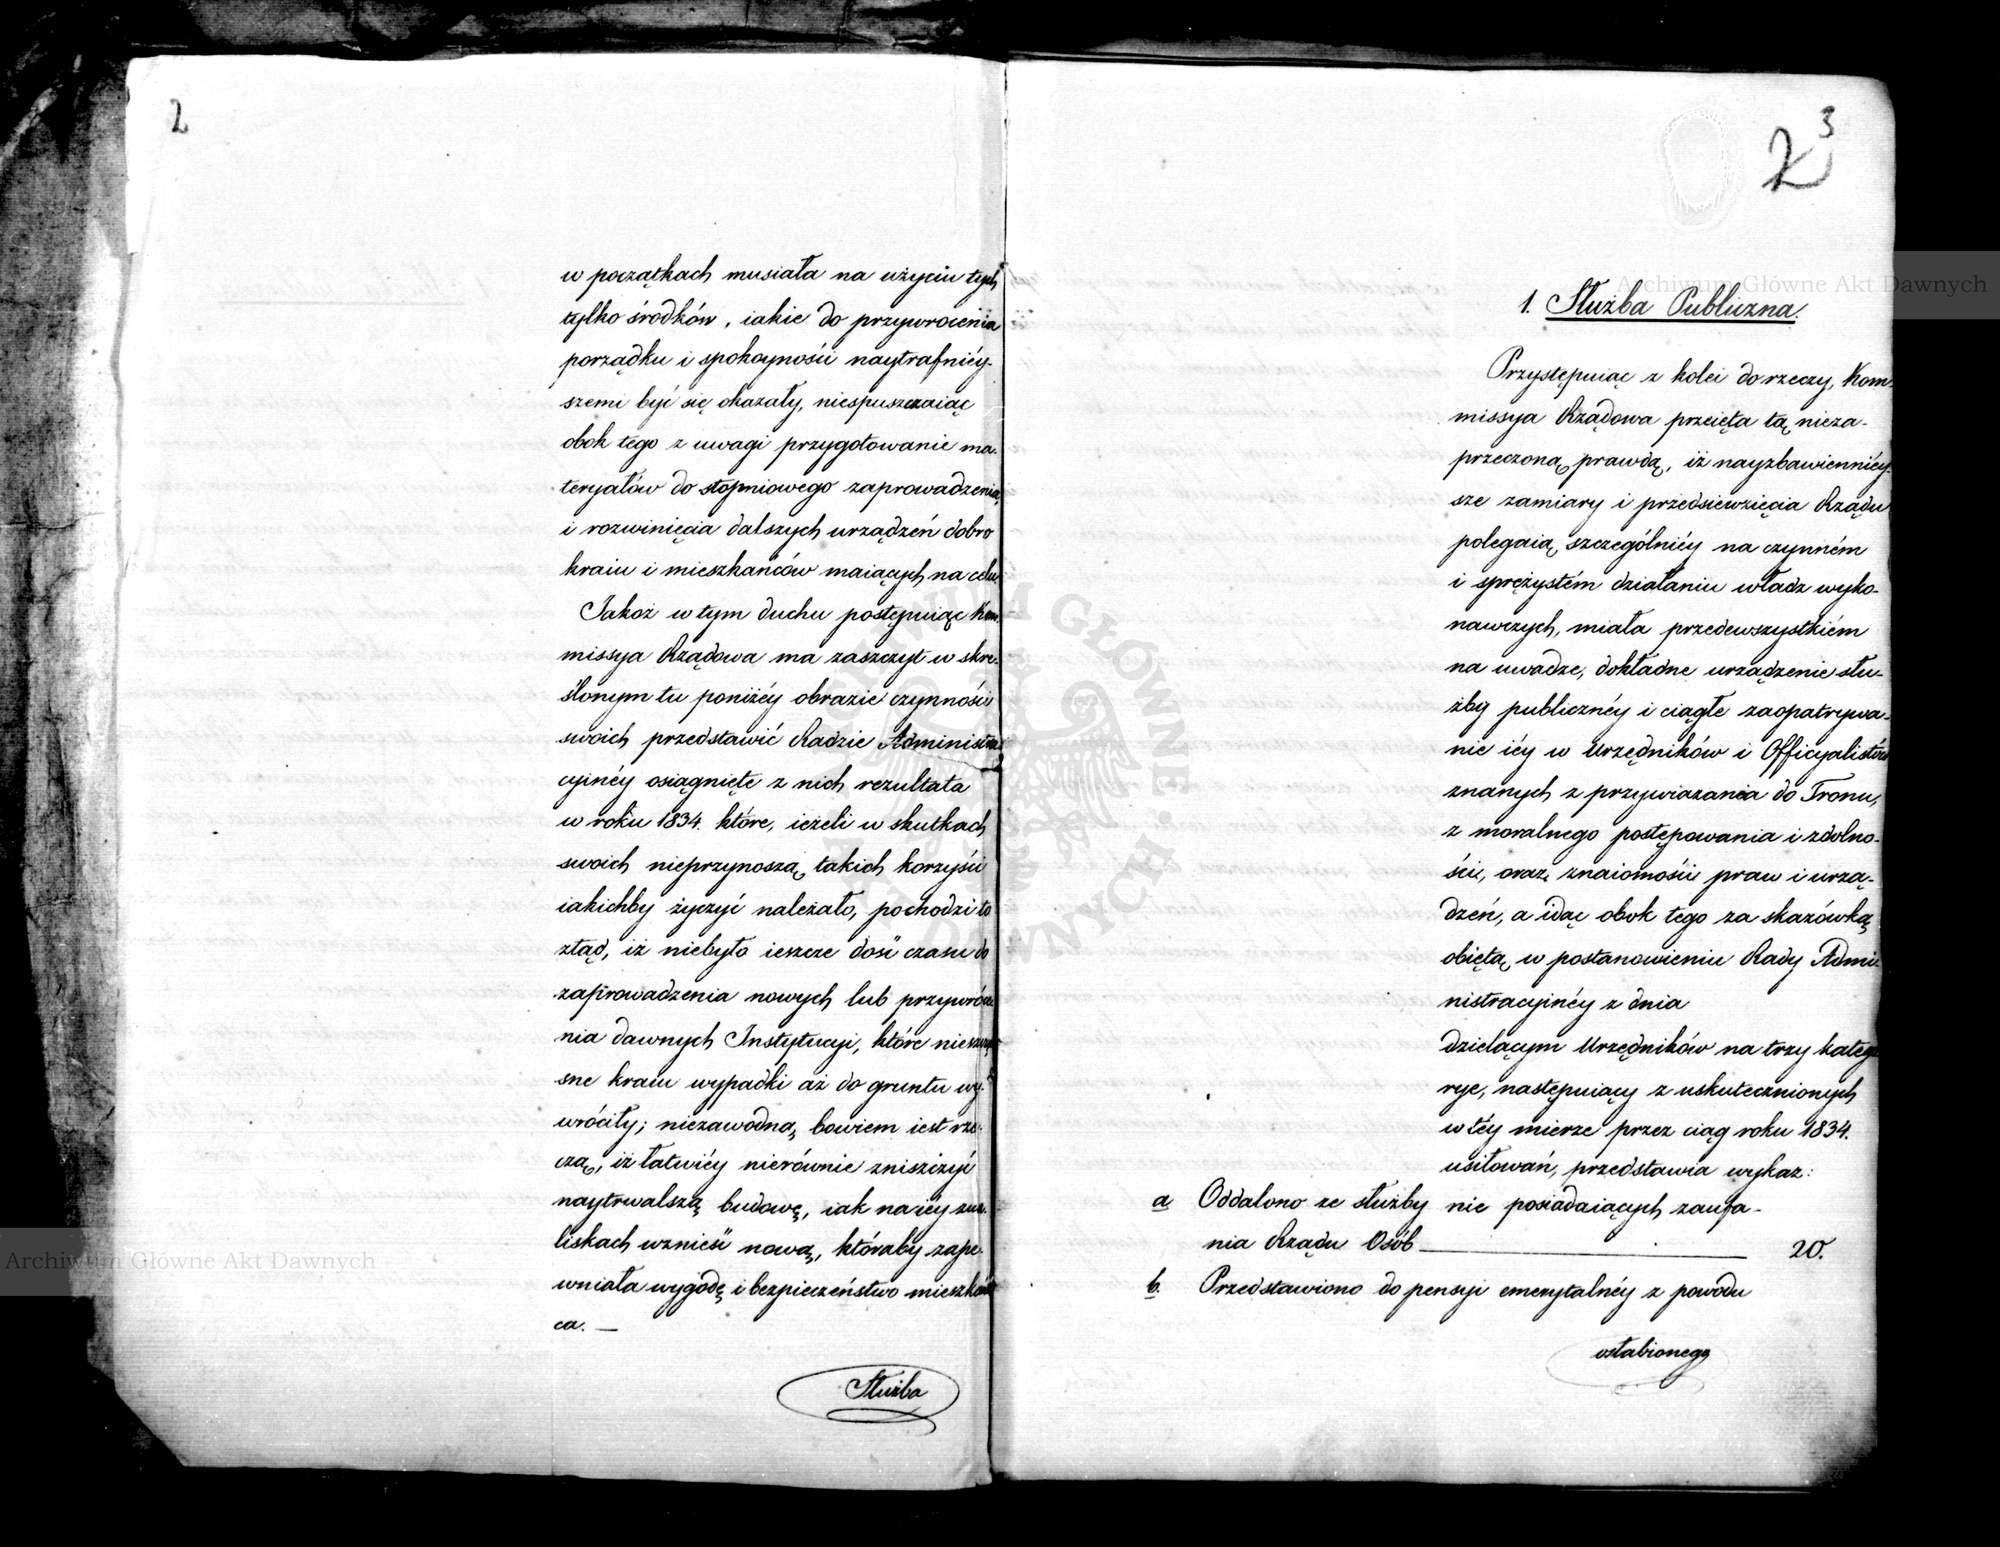 2
w początkach musiała na użyciu tych
tylko środków, iakie do przywrocenia
porządku i spokoyności naytrafniéy-
szemi być się okazały, niespuszczaiąc
obok tego z uwagi przygotowanie ma-
teryałów do stopniowego zaprowadzenia
i rozwinięcia dalszych urządzeń dobro
kraiu i mieszkańców maiących na celu.
Jakoż w tym duchu postępuiąc Kom-
missya Rządowa ma zaszczyt w skre-
ślonym tu poniżéy obrazie czynności
swoich przedstawić Radzie Administra-
cyinéy osiągnięte z nich rezultata
w roku 1834. które, ieżeli w skutkach
swoich nieprzynoszą takich korzyści
iakichby życzyć należało, pochodzi to
ztąd, iż niebyło ieszcze dość czasu do
zaprowadzenia nowych lub przywróce-
nia dawnych Instytucyi, które nieszczę-
sne kraiu wypadki aż do gruntu wy-
wróciły; niezawodną bowiem iest rze-
czą, iż łatwiéy nierównie zniszczyć
naytrwalszą budowę, iak na iéy zwa-
liskach wznieść nową, któraby zape-
wniała wygodę i bezpieczeństwo mieszkań-
ca. —
Służba
3
2
1. Służba Publiczna.
Przystępuiąc z kolei do rzeczy, Kom-
missya Rządowa przeięta tą nieza-
przeczoną prawdą, iż nayzbawienniéy-
sze zamiary i przedsiewzięcia Rządu
polegaią szczególniéy na czynném
i sprężystém działaniu władz wyko-
nawczych, miała przedewszystkiém
na uwadze, dokładne urządzenie słu-
żby publicznéy i ciągłe zaopatrywa-
nie iéy w Urzędników i Officyalistów
znanych z przywiazania do Tronu,
z moralnego postępowania i zdolno-
ści, oraz znaiomości praw i urzą-
dzeń, a idąc obok tego za skazówką
obiętą w postanowieniu Rady Admi-
nistracyinéy z dnia
dzielącym Urzędników na trzy katego-
rye, następuiący z uskutecznionych
w téy mierze przez ciąg roku 1834.
usiłowań, przedstawia wykaz:
a. Oddalono ze służby nie posiadaiących zaufa-
nia Rządu Osób — 20.
b. Przedstawiono do pensyi emerytalnéy z powodu
osłabionego
Archiwum Główne Akt Dawnych
Archiwum Główne Akt Dawnych
ARCHIWUM GŁÓWNE AKT DAWNYCH